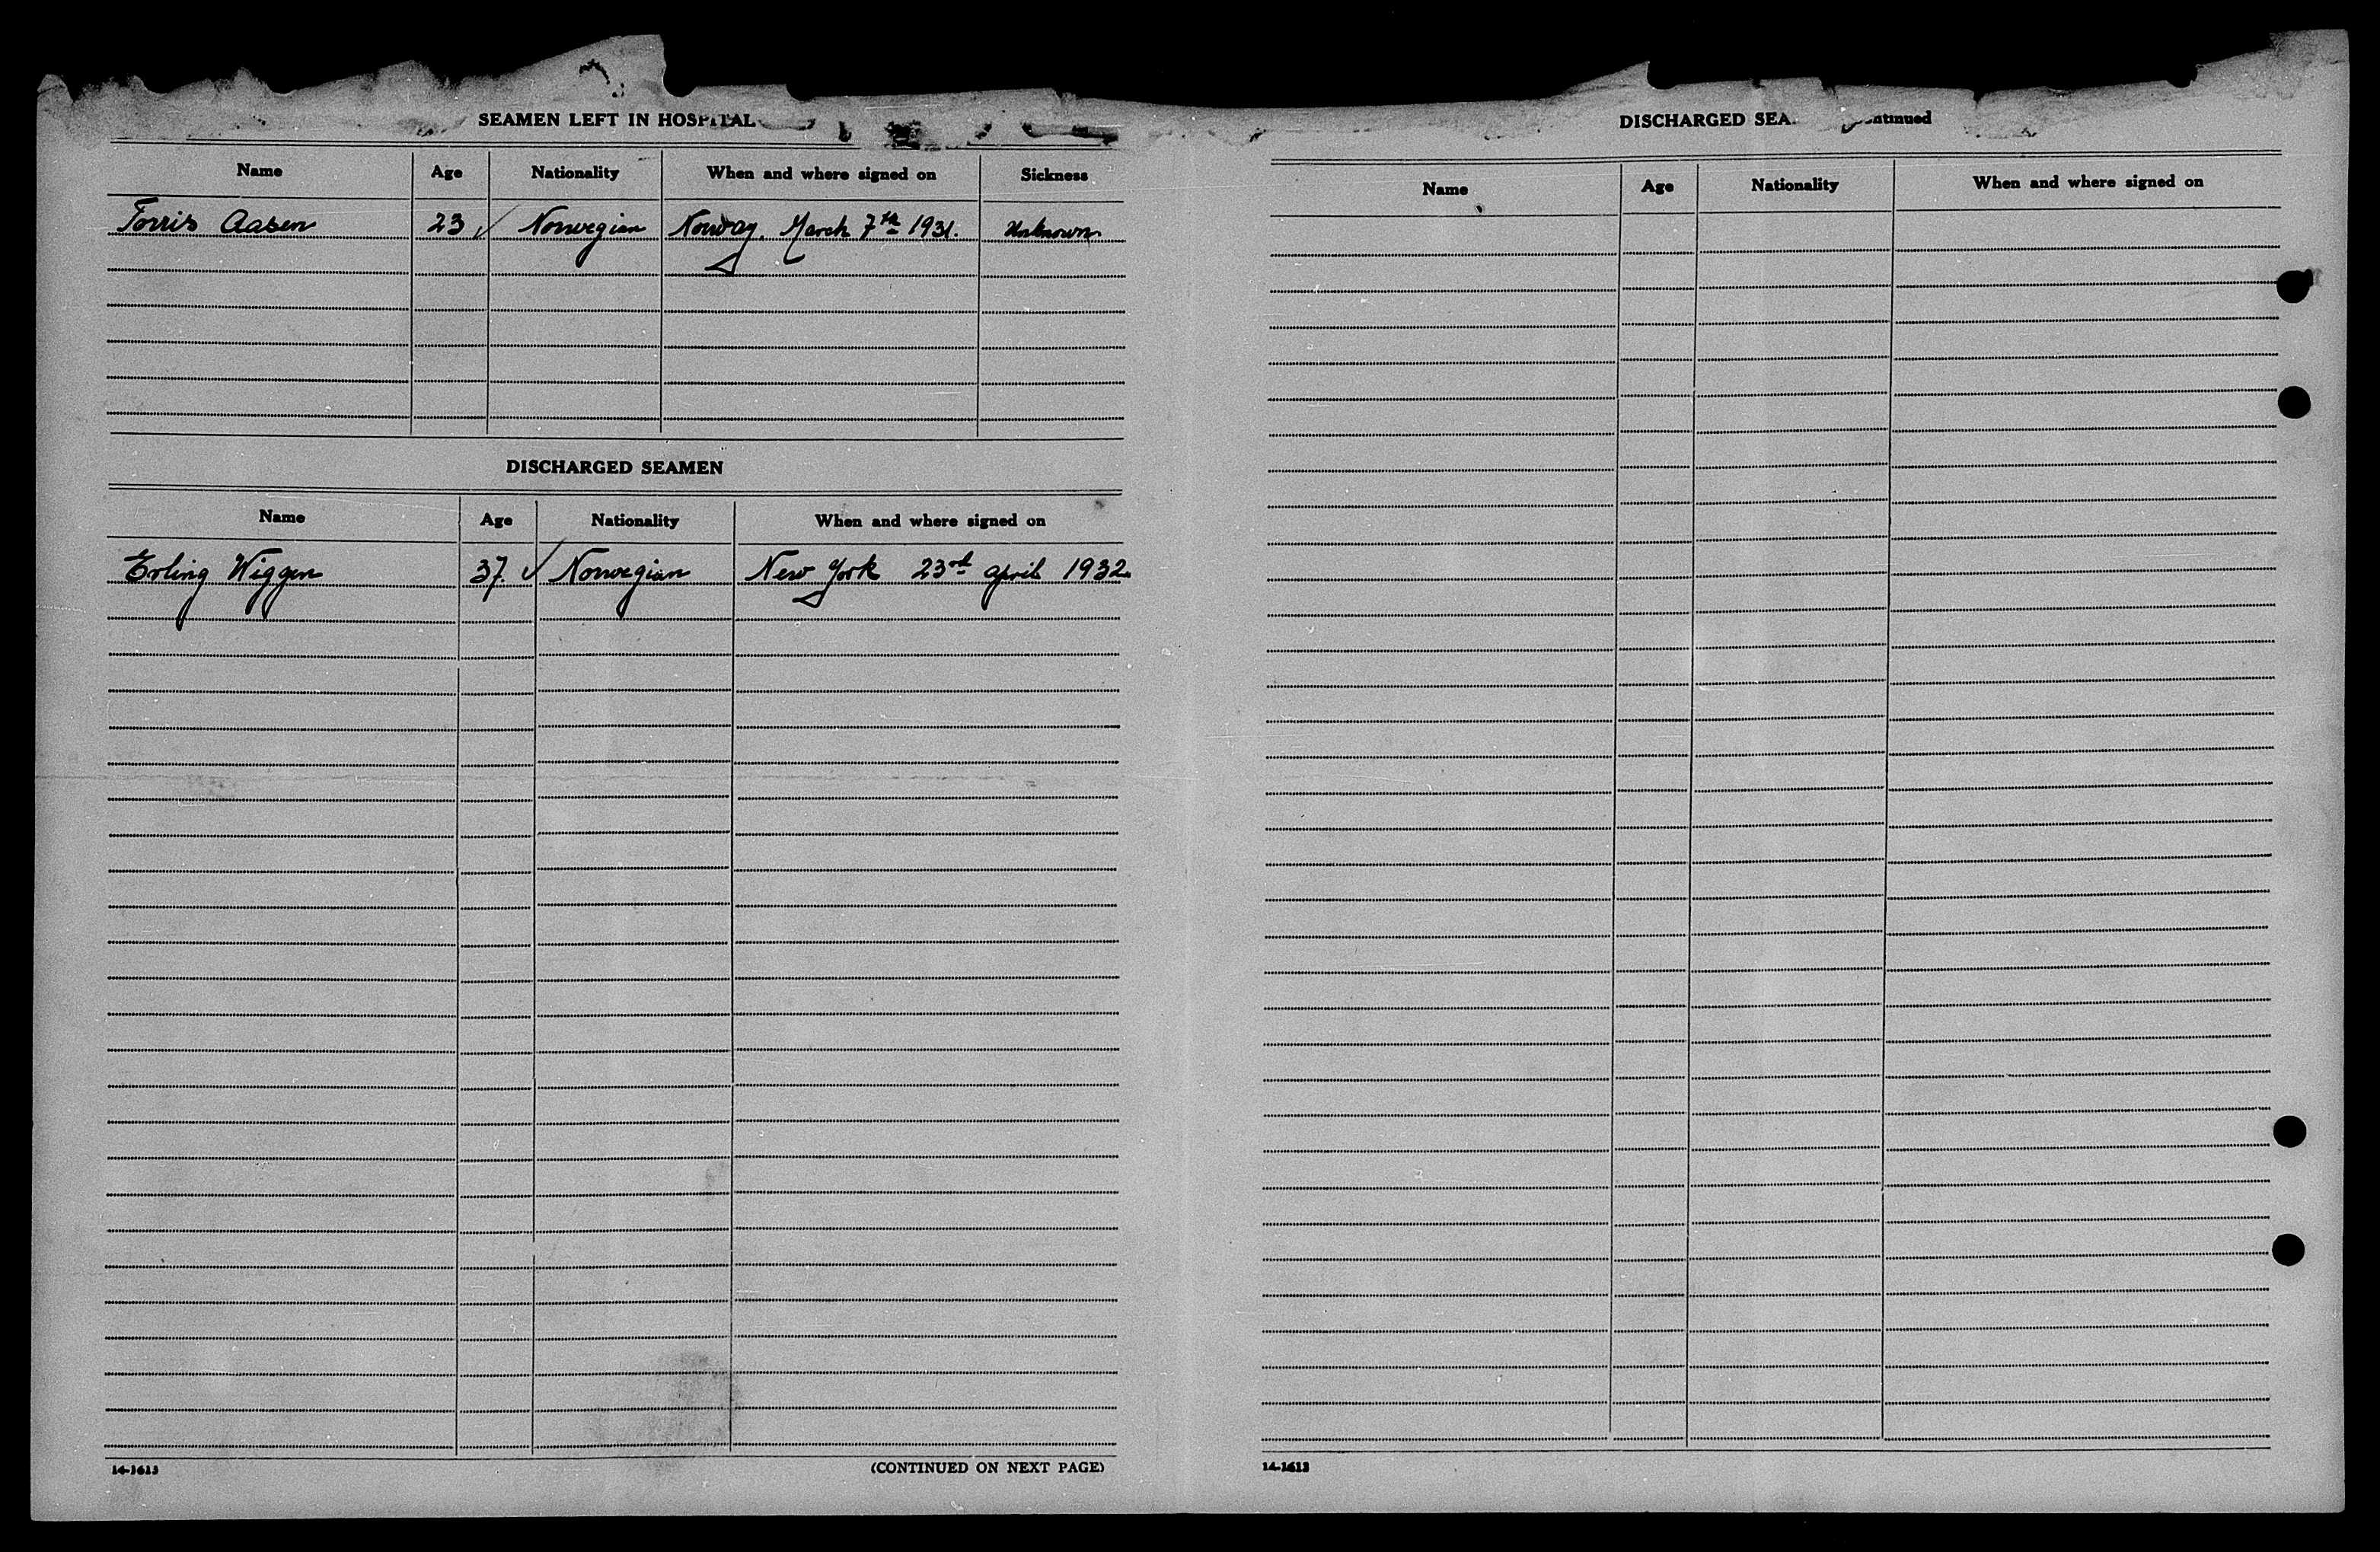 SEAMEN LEFT IN HOSPITAL
Name Age Nationality When and where signed on Sickness
Torris Aasen 23 ✓ Norwegian Norway. March 7th 1931. Unknown
DISCHARGED SEAMEN
Name Age Nationality When and where signed on
Erling Wiggen 37. ✓ Norwegian New York 23rd april 1932.
14-1613
(CONTINUED ON NEXT PAGE)
DISCHARGED
Name Age Nationality When and where signed on
14-1613